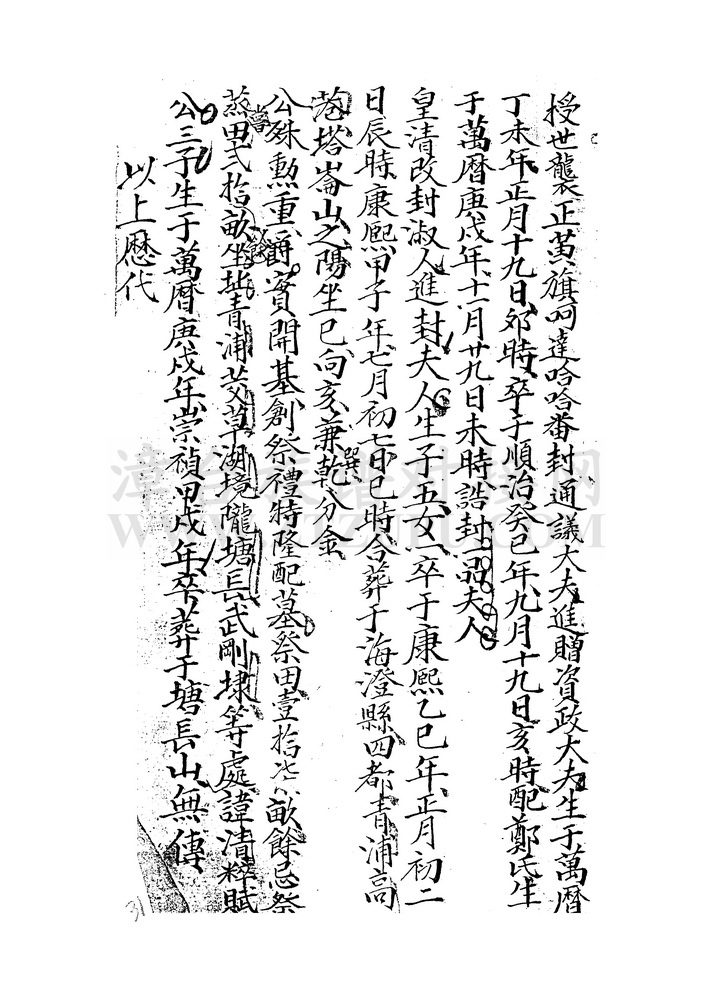 授世襲正黃旗阿達哈哈番封通議大夫進贈資政大夫生于萬曆
丁未年正月十九日卯時卒于順治癸巳年九月十九日亥時配鄭氏生
于萬曆庚戌年十一月廿九日未時誥封一品夫人
皇清改封淑人進封夫人生子五女一卒于康熙乙巳年正月初二
日辰時康熙甲子年七月初七日巳時合葬于海澄縣四都青浦高
塔崙山之陽坐巳向亥兼乾巽分金
公殊勳重爵賓開基創祭禮特隆配墓祭田壹拾柒畝餘忌祭
蒸嘗田弍拾畝餘坐址青浦茭草湖境隴塘長武剛埭等處諱清粹賦
公三子生于萬曆庚戌年崇禎甲戌年卒葬于塘長山無傳
以上歷代
31
漳台族譜对接网